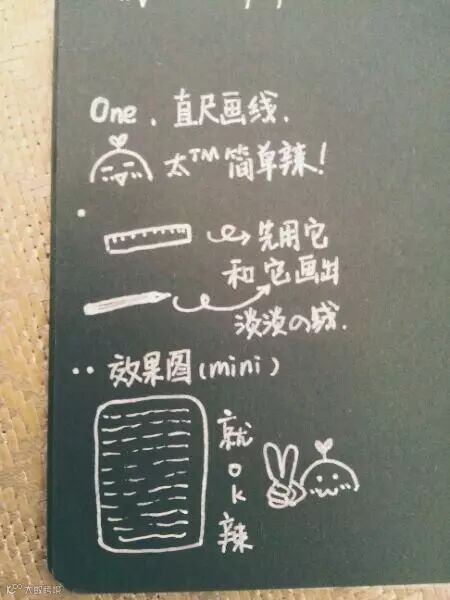 One、直尺画线.
太™简单辣!
先用它
和它画出
淡淡の线.
效果图(mini)
就OK辣